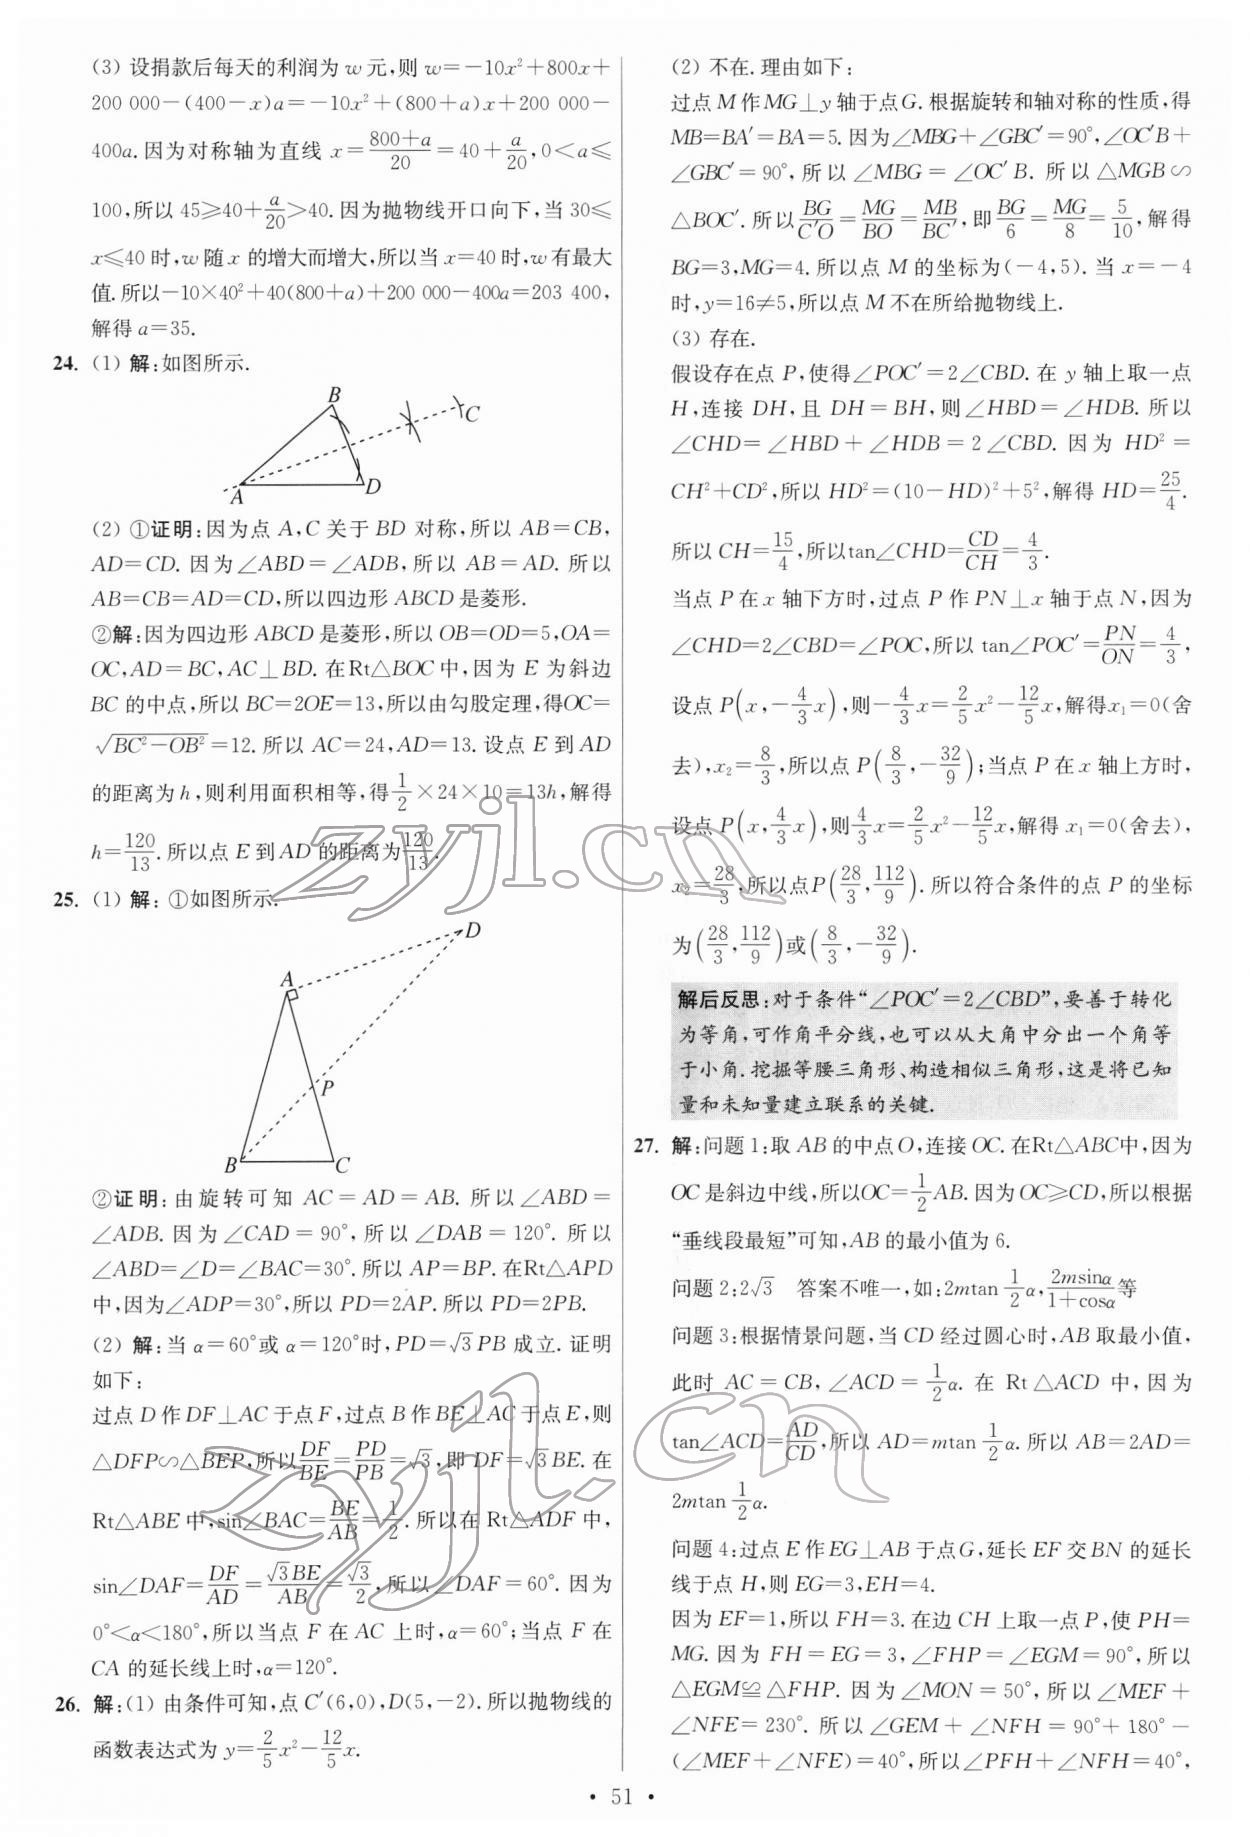 (3) 设捐款后每天的利润为 w 元,则 w=-10x²+800x+
200 000-(400-x)a=-10x²+(800+a)x+200 000-
400a.因为对称轴为直线 x=\frac{800+a}{20}=40+\frac{a}{20},0<a≤
100,所以 45≥40+\frac{a}{20}>40.因为抛物线开口向下,当 30≤
x≤40 时,w 随 x 的增大而增大,所以当 x=40 时,w 有最大
值.所以-10×40²+40(800+a)+200 000-400a=203 400,
解得 a=35.
24. (1) 解:如图所示.
B
C
A
D
(2) ①证明:因为点 A,C 关于 BD 对称,所以 AB=CB,
AD=CD. 因为∠ABD=∠ADB,所以 AB=AD. 所以
AB=CB=AD=CD,所以四边形 ABCD 是菱形.
②解:因为四边形 ABCD 是菱形,所以 OB=OD=5,OA=
OC,AD=BC,AC⊥BD. 在Rt△BOC 中,因为 E 为斜边
BC 的中点,所以 BC=2OE=13,所以由勾股定理,得OC=
\sqrt{BC²-OB²}=12. 所以 AC=24,AD=13. 设点 E 到 AD
的距离为 h,则利用面积相等,得\frac{1}{2}×24×10=13h,解得
h=\frac{120}{13}.所以点 E 到 AD 的距离为\frac{120}{13}.
25. (1) 解: ①如图所示.
D
A
P
B
C
②证明: 由旋转可知 AC=AD=AB. 所以∠ABD=
∠ADB. 因为∠CAD=90°,所以∠DAB=120°. 所以
∠ABD=∠D=∠BAC=30°.所以 AP=BP. 在Rt△APD
中,因为∠ADP=30°,所以 PD=2AP. 所以 PD=2PB.
(2) 解:当 α=60°或 α=120°时,PD=\sqrt{3}PB 成立. 证明
如下:
过点 D 作 DF⊥AC 于点 F,过点 B 作 BE⊥AC 于点 E,则
△DFP∽△BEP,所以\frac{DF}{BE}=\frac{PD}{PB}=\sqrt{3},即 DF=\sqrt{3}BE. 在
Rt△ABE 中,sin∠BAC=\frac{BE}{AB}=\frac{1}{2}.所以在 Rt△ADF 中,
sin∠DAF=\frac{DF}{AD}=\frac{\sqrt{3}BE}{AB}=\frac{\sqrt{3}}{2},所以∠DAF=60°. 因为
0°<α<180°,所以当点 F 在 AC 上时,α=60°;当点 F 在
CA 的延长线上时,α=120°.
26. 解:(1) 由条件可知,点 C′(6,0),D(5,-2).所以抛物线的
函数表达式为 y=\frac{2}{5}x²-\frac{12}{5}x.
(2) 不在.理由如下:
过点 M 作MG⊥y 轴于点G.根据旋转和轴对称的性质,得
MB=BA′=BA=5. 因为∠MBG+∠GBC′=90°,∠OC′B+
∠GBC′=90°,所以∠MBG=∠OC′B. 所以△MGB∽
△BOC′.所以\frac{BG}{C′O}=\frac{MG}{BO}=\frac{MB}{BC′},即\frac{BG}{6}=\frac{MG}{8}=\frac{5}{10},解得
BG=3,MG=4. 所以点 M 的坐标为(-4,5). 当 x=-4
时,y=16≠5,所以点 M 不在所给抛物线上.
(3) 存在.
假设存在点 P,使得∠POC′=2∠CBD. 在 y 轴上取一点
H,连接 DH,且 DH=BH,则∠HBD=∠HDB. 所以
∠CHD=∠HBD+∠HDB=2∠CBD. 因为 HD²=
CH²+CD²,所以 HD²=(10-HD)²+5²,解得 HD=\frac{25}{4}.
所以 CH=\frac{15}{4},所以tan∠CHD=\frac{CD}{CH}=\frac{4}{3}.
当点 P 在 x 轴下方时,过点 P 作 PN⊥x 轴于点 N,因为
∠CHD=2∠CBD=∠POC,所以 tan∠POC′=\frac{PN}{ON}=\frac{4}{3},
设点 P(x,-\frac{4}{3}x),则-\frac{4}{3}x=\frac{2}{5}x²-\frac{12}{5}x,解得x₁=0(舍
去),x₂=\frac{8}{3},所以点 P(\frac{8}{3},-\frac{32}{9});当点 P 在 x 轴上方时,
设点 P(x,\frac{4}{3}x),则\frac{4}{3}x=\frac{2}{5}x²-\frac{12}{5}x,解得 x₁=0(舍去),
x₂=\frac{28}{3},所以点P(\frac{28}{3},\frac{112}{9}). 所以符合条件的点 P 的坐标
为(\frac{28}{3},\frac{112}{9})或(\frac{8}{3},-\frac{32}{9}).
解后反思:对于条件“∠POC′=2∠CBD”,要善于转化
为等角,可作角平分线,也可以从大角中分出一个角等
于小角.挖掘等腰三角形、构造相似三角形,这是将已知
量和未知量建立联系的关键.
27. 解:问题 1:取 AB 的中点 O,连接 OC. 在Rt△ABC中,因为
OC 是斜边中线,所以OC=\frac{1}{2}AB. 因为 OC≥CD,所以根据
“垂线段最短”可知,AB 的最小值为 6.
问题 2:2\sqrt{3} 答案不唯一,如:2mtan\frac{1}{2}α,\frac{2msinα}{1+cosα}等
问题 3:根据情景问题,当 CD 经过圆心时,AB 取最小值,
此时 AC=CB,∠ACD=\frac{1}{2}α. 在 Rt△ACD 中,因为
tan∠ACD=\frac{AD}{CD},所以 AD=mtan\frac{1}{2}α. 所以 AB=2AD=
2mtan\frac{1}{2}α.
问题 4:过点 E 作 EG⊥AB 于点 G,延长 EF 交 BN 的延长
线于点 H,则 EG=3,EH=4.
因为 EF=1,所以 FH=3. 在边 CH 上取一点 P,使 PH=
MG. 因为 FH=EG=3,∠FHP=∠EGM=90°,所以
△EGM≌△FHP. 因为∠MON=50°,所以∠MEF+
∠NFE=230°. 所以∠GEM+∠NFH=90°+180°-
(∠MEF+∠NFE)=40°,所以∠PFH+∠NFH=40°,
• 51 •
zyjl.cn
zyjl.cn